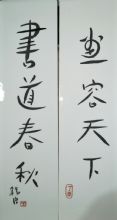 畫容天下
書道春秋